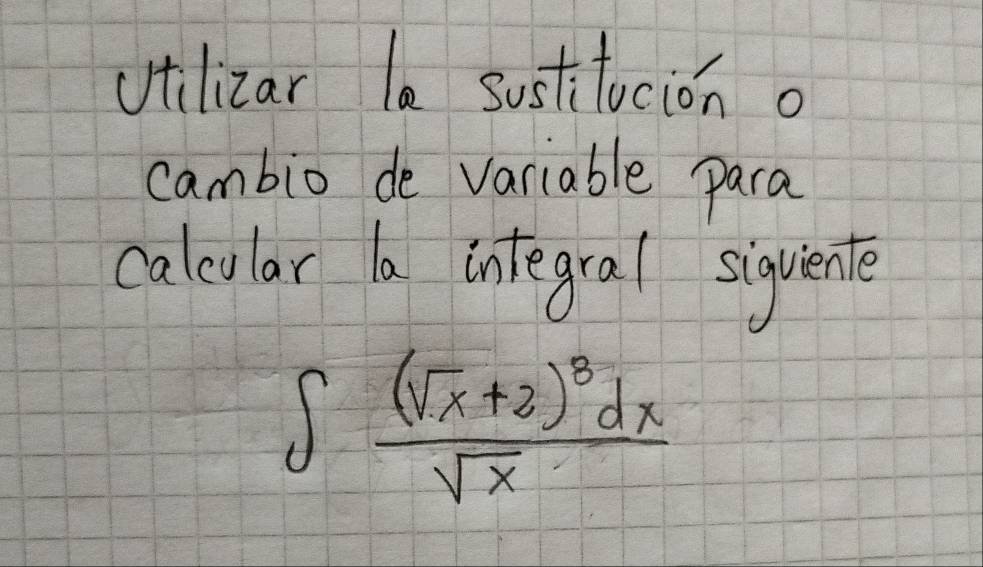 Utilizar la sustitución o
cambio de variable para
calcular la integral siguiente
∫ (√x + 2)⁸ dx / √x